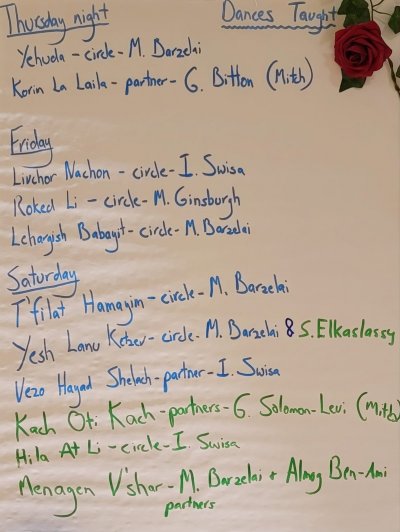 Thursday night Dances Taught
Yehuda - circle - M. Barzelai
Korin La Laila - partner - G. Bitton (Mitch)
Friday
Livchor Nachon - circle - I. Swisa
Roked Li - circle - M. Ginsburgh
Lehargish Babayit - circle - M. Barzelai
Saturday
T'filat Hamayim - circle - M. Barzelai
Yesh Lanu Ketzev - circle - M. Barzelai & S. Elkaslassy
Vezo Hayad Shelach - partner - I. Swisa
Kach Oti Kach - partners - G. Solomon-Levi (Mitch)
Hila At Li - circle - I. Swisa
Menagen V'shar - M. Barzelai + Almog Ben-Ami
partners